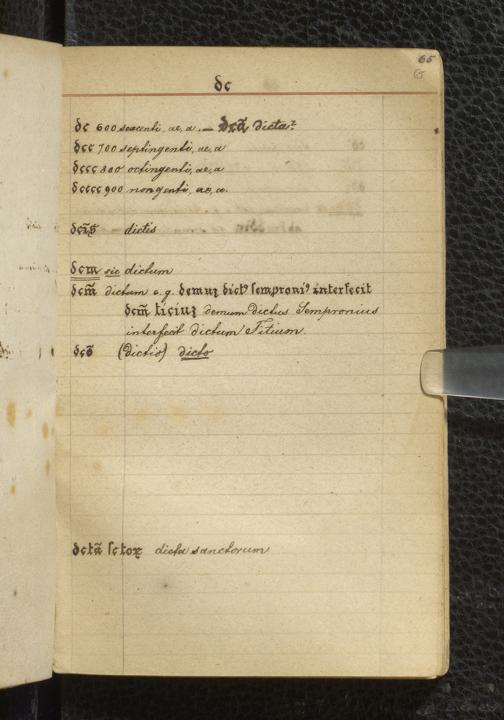 65
65
dc
dc 600 sexcenti, ae, a. — dcã dicta.
dcc 700 septingenti, ae, a
dccc 800 octingenti, ae, a
dcccc 900 nongenti, ae, a.
dcĩs dictis
dcm sic dictum
dcm̃ dictum e.g. demuʒ dict⁹ semproni⁹ interfecit
dcm̃ ticiuʒ demum dictus Sempronius
interfecit dictum Titium.
dcõ (dictio) dicto
dctã sctoꝝ dicta sanctorum